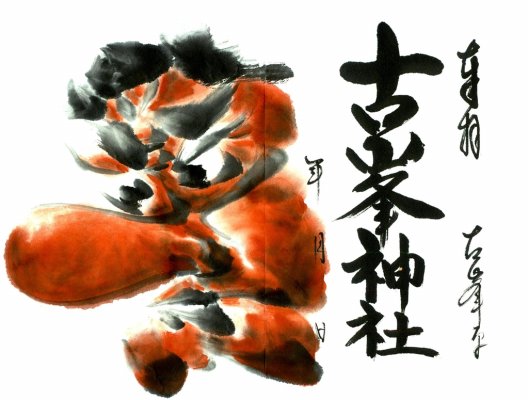 奉拝 古峯
古峯神社
年 月 日